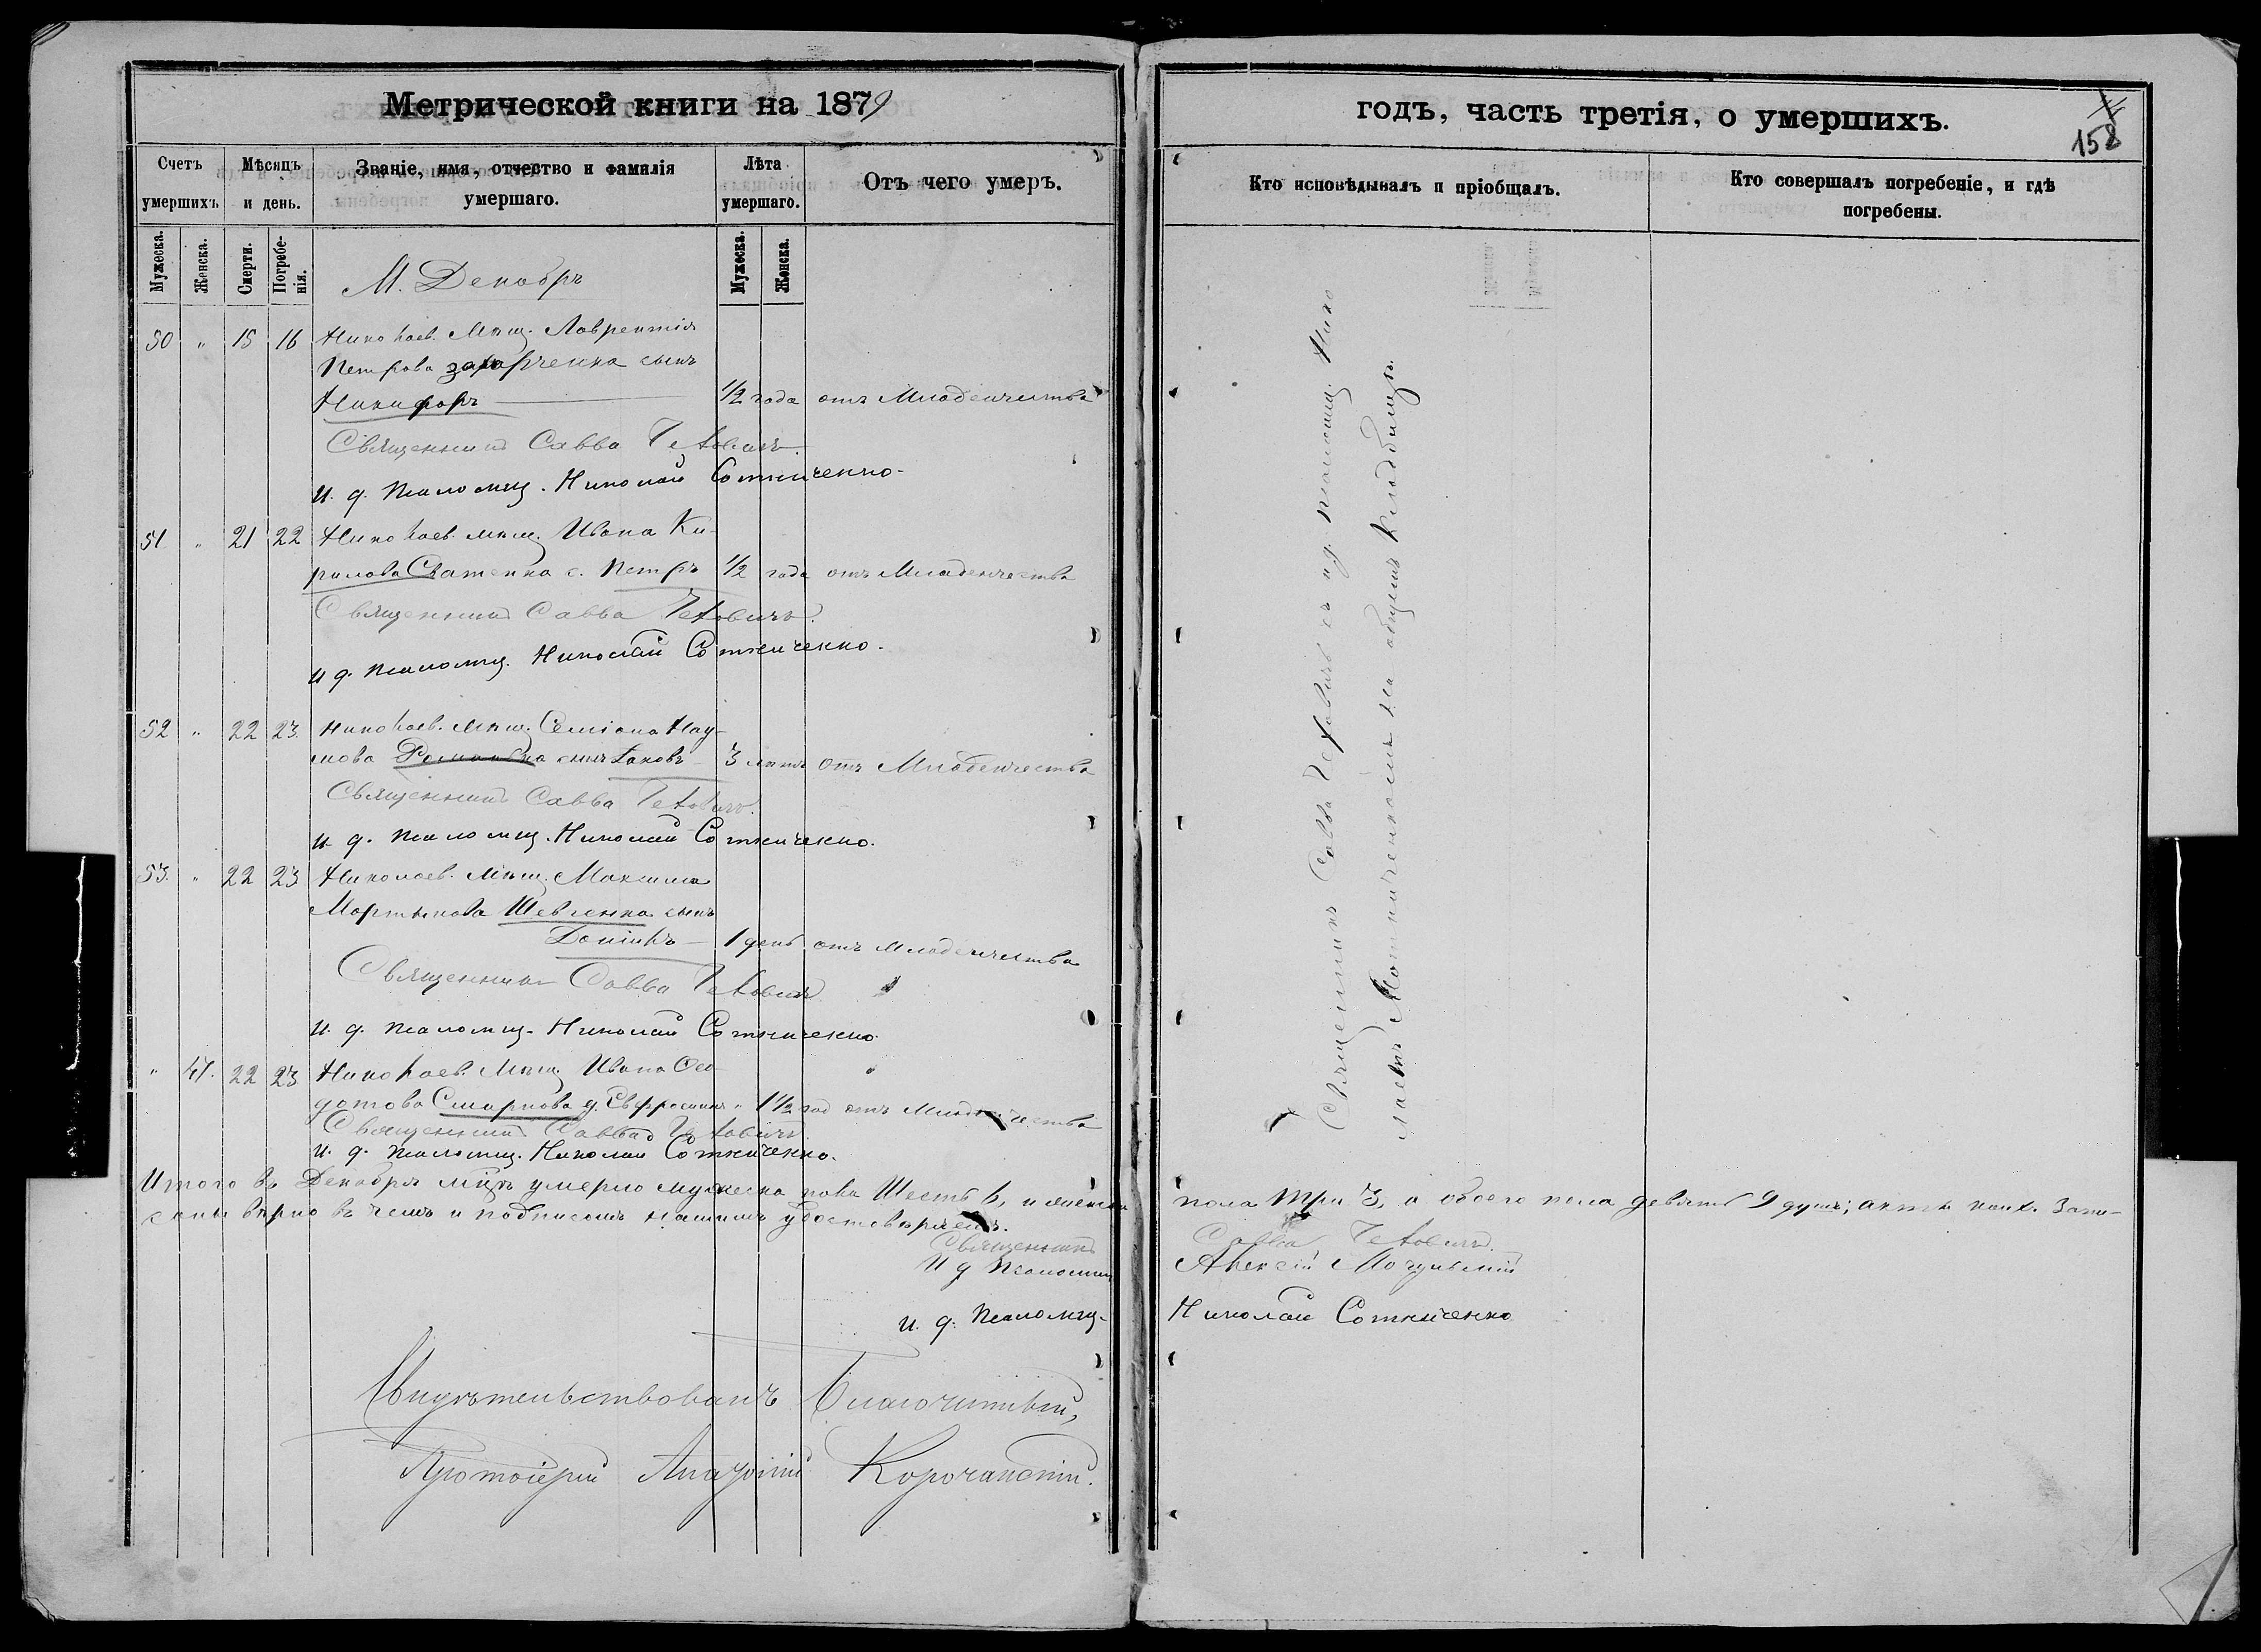 Метрической книги на 1879
годъ, часть третія, о умершихъ.
158
Счетъ умершихъ.
Мѣсяцъ и день.
Званіе, имя, отчество и фамилія умершаго.
Лѣта умершаго.
Отъ чего умеръ.
Кто исповѣдывалъ и пріобщалъ.
Кто совершалъ погребеніе, и гдѣ погребены.
Мужеска.
Женска.
Смерти.
Погребенія.
Мужеска.
Женска.
М. Декабрь
50 " 15 16 Николаев. Мѣщ. Лаврентія
Петрова Захарченка сынъ
Никифоръ 1/2 года отъ Младенчества
Священникъ Савва
и. д. Псаломщ. Николай Сотниченко.
51 " 21 22 Николаев. мѣщ. Ивана Ки-
рилова с. Петръ 1/2 года отъ Младенчества
Священникъ Савва
и д. Псаломщ. Николай Сотниченко.
52 " 22 23 Николаев. Мѣщ. Семіона Нау-
мова сынъ Іаковъ 3 лѣтъ отъ Младенчества
Священникъ Савва
и. д. Псаломщ. Николай Сотниченко.
53. " 22 23 Николаев. Мѣщ. Максима
Мартынова Шевченка сынъ
Даніилъ 1 день отъ младенчества
Священникъ Савва
и. д. Псаломщ. Николай Сотниченко.
" 41. 22 23 Николаев. Мѣщ. Ивана Ѳео-
дотова Смирнова д. Евфросинія " 1 1/2 год отъ Младенчества
Священникъ Савва
и. д. Псаломщ. Николай Сотниченко.
Итого въ Декабрѣ мцѣ умерло мужеска пола Шесть 6, и женска пола три 3, а обоего пола девять 9 душъ; акты коих запи-
саны вѣрно въ чемъ и подписомъ нашимъ удостовѣряемъ.
Священникъ Савва
И д Псаломщ Алексій
и. д. Псаломщ. Николай Сотниченко
Свидѣтельствовалъ Благочинный,
Протоіерей Корочанскій.
Священникъ Савва съ и.д. псаломщ. Нико
лаемъ Сотниченкомъ на общемъ Кладбищѣ.